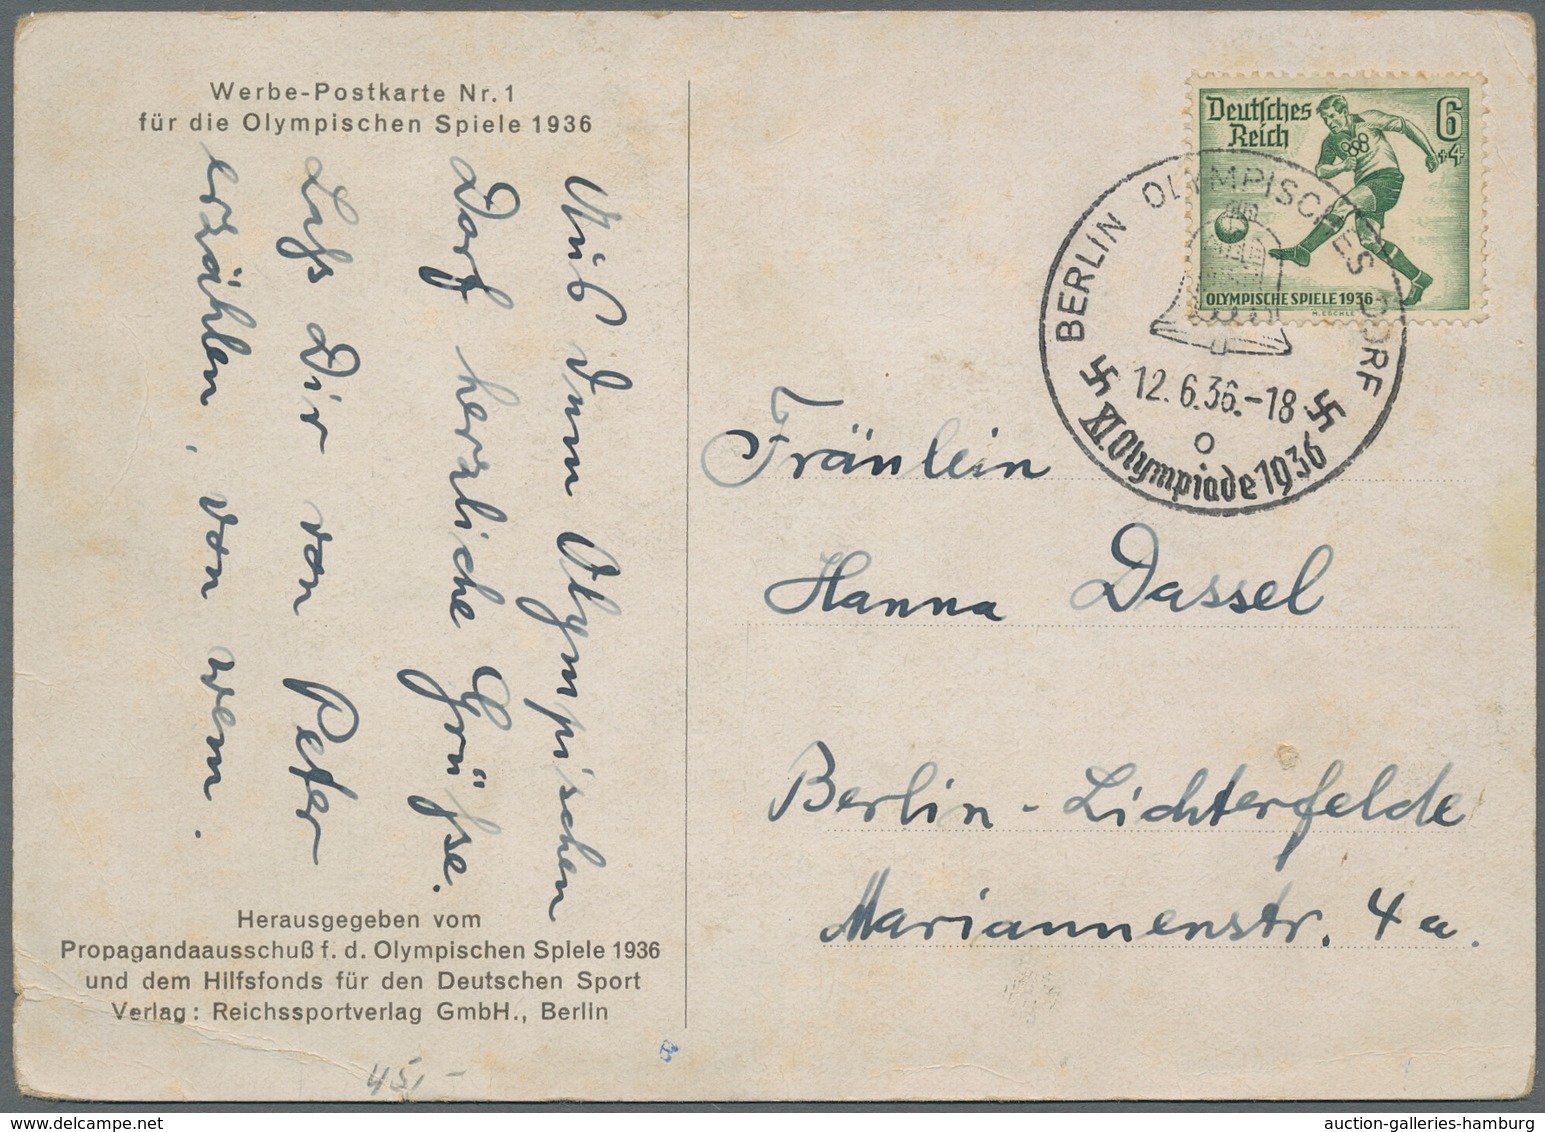 Werbe-Postkarte Nr. 1
für die Olympischen Spiele 1936
Aus dem Olympischen
Dorf herzliche Grüße.
Lass Dir von Peter
erzählen, von wem.
Herausgegeben vom
Propagandaausschuß f. d. Olympischen Spiele 1936
und dem Hilfsfonds für den Deutschen Sport
Verlag: Reichssportverlag GmbH., Berlin
45,-
Deutsches
Reich
6
+4
OLYMPISCHE SPIELE 1936
M. ESCHLE
BERLIN OLYMPISCHES DORF
12.6.36.-18
XI. Olympiade 1936
Fräulein
Hanna Dassel
Berlin-Lichterfelde
Mariannenstr. 4a.
auction-galleries-hamburg